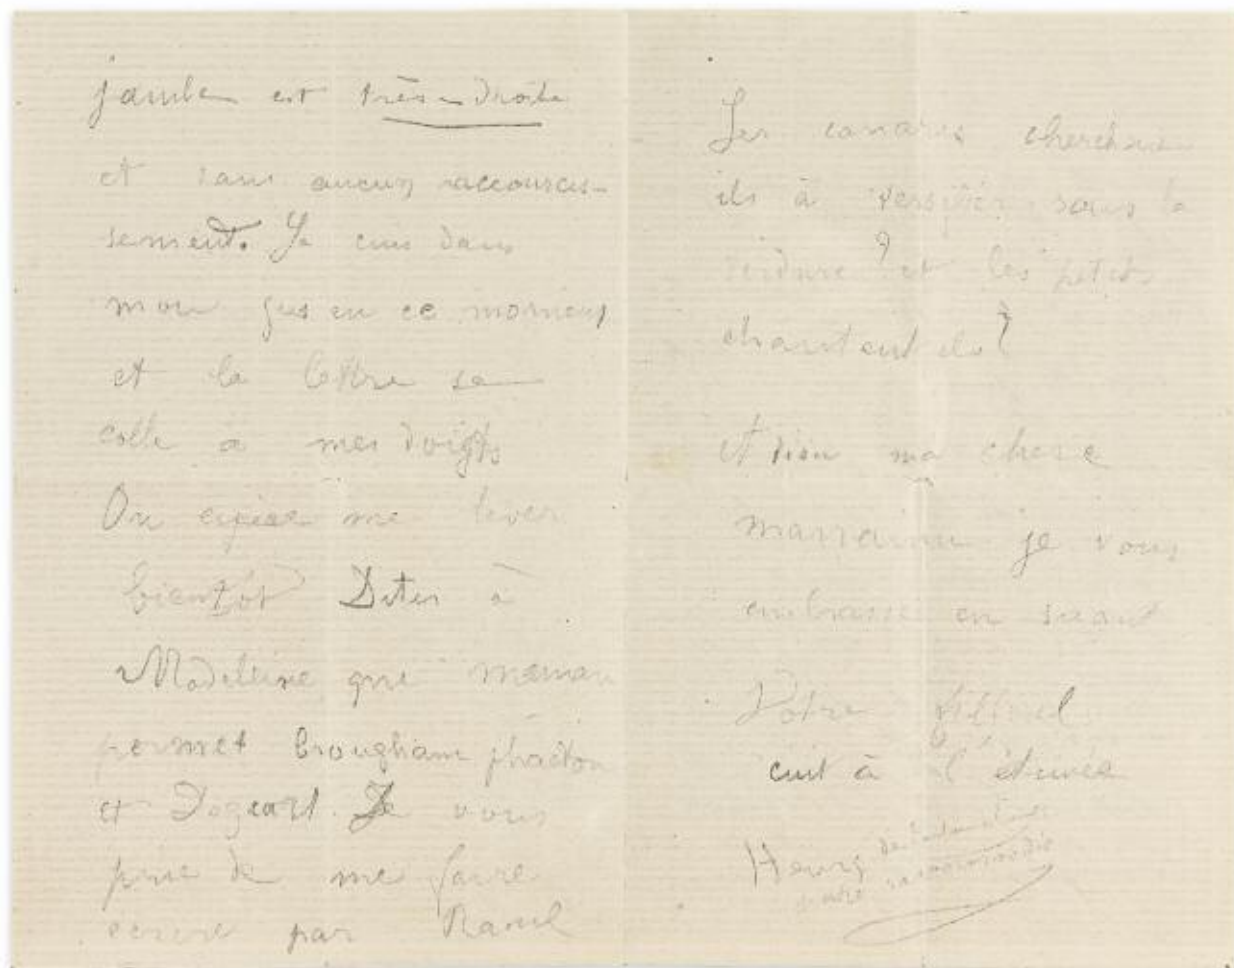 jambe est très droite
et sans aucun raccourcis-
sement. Je cuis dans
mon jus en ce moment
et la lettre se
colle à mes doigts
On me lever
bientôt Dites à
Madeleine que maman
permet brougham phaéton
et Dogcart. Je vous
prie de me faire
écrire par Raoul
Les canaris cherchent
ils à sous la
verdure ? et les petits
chantent ils ?
Adieu ma chere
marraine je vous
embrasse en suant
Votre filleul
cuit à l'étuvée
Henry